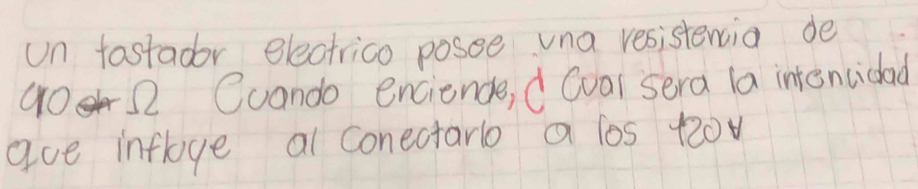 Un tostador electrico posee una resistencia de
40 Ω Cuando enciende, ¿ Cual sera la intencidad
que influye al conectarlo a los 120V